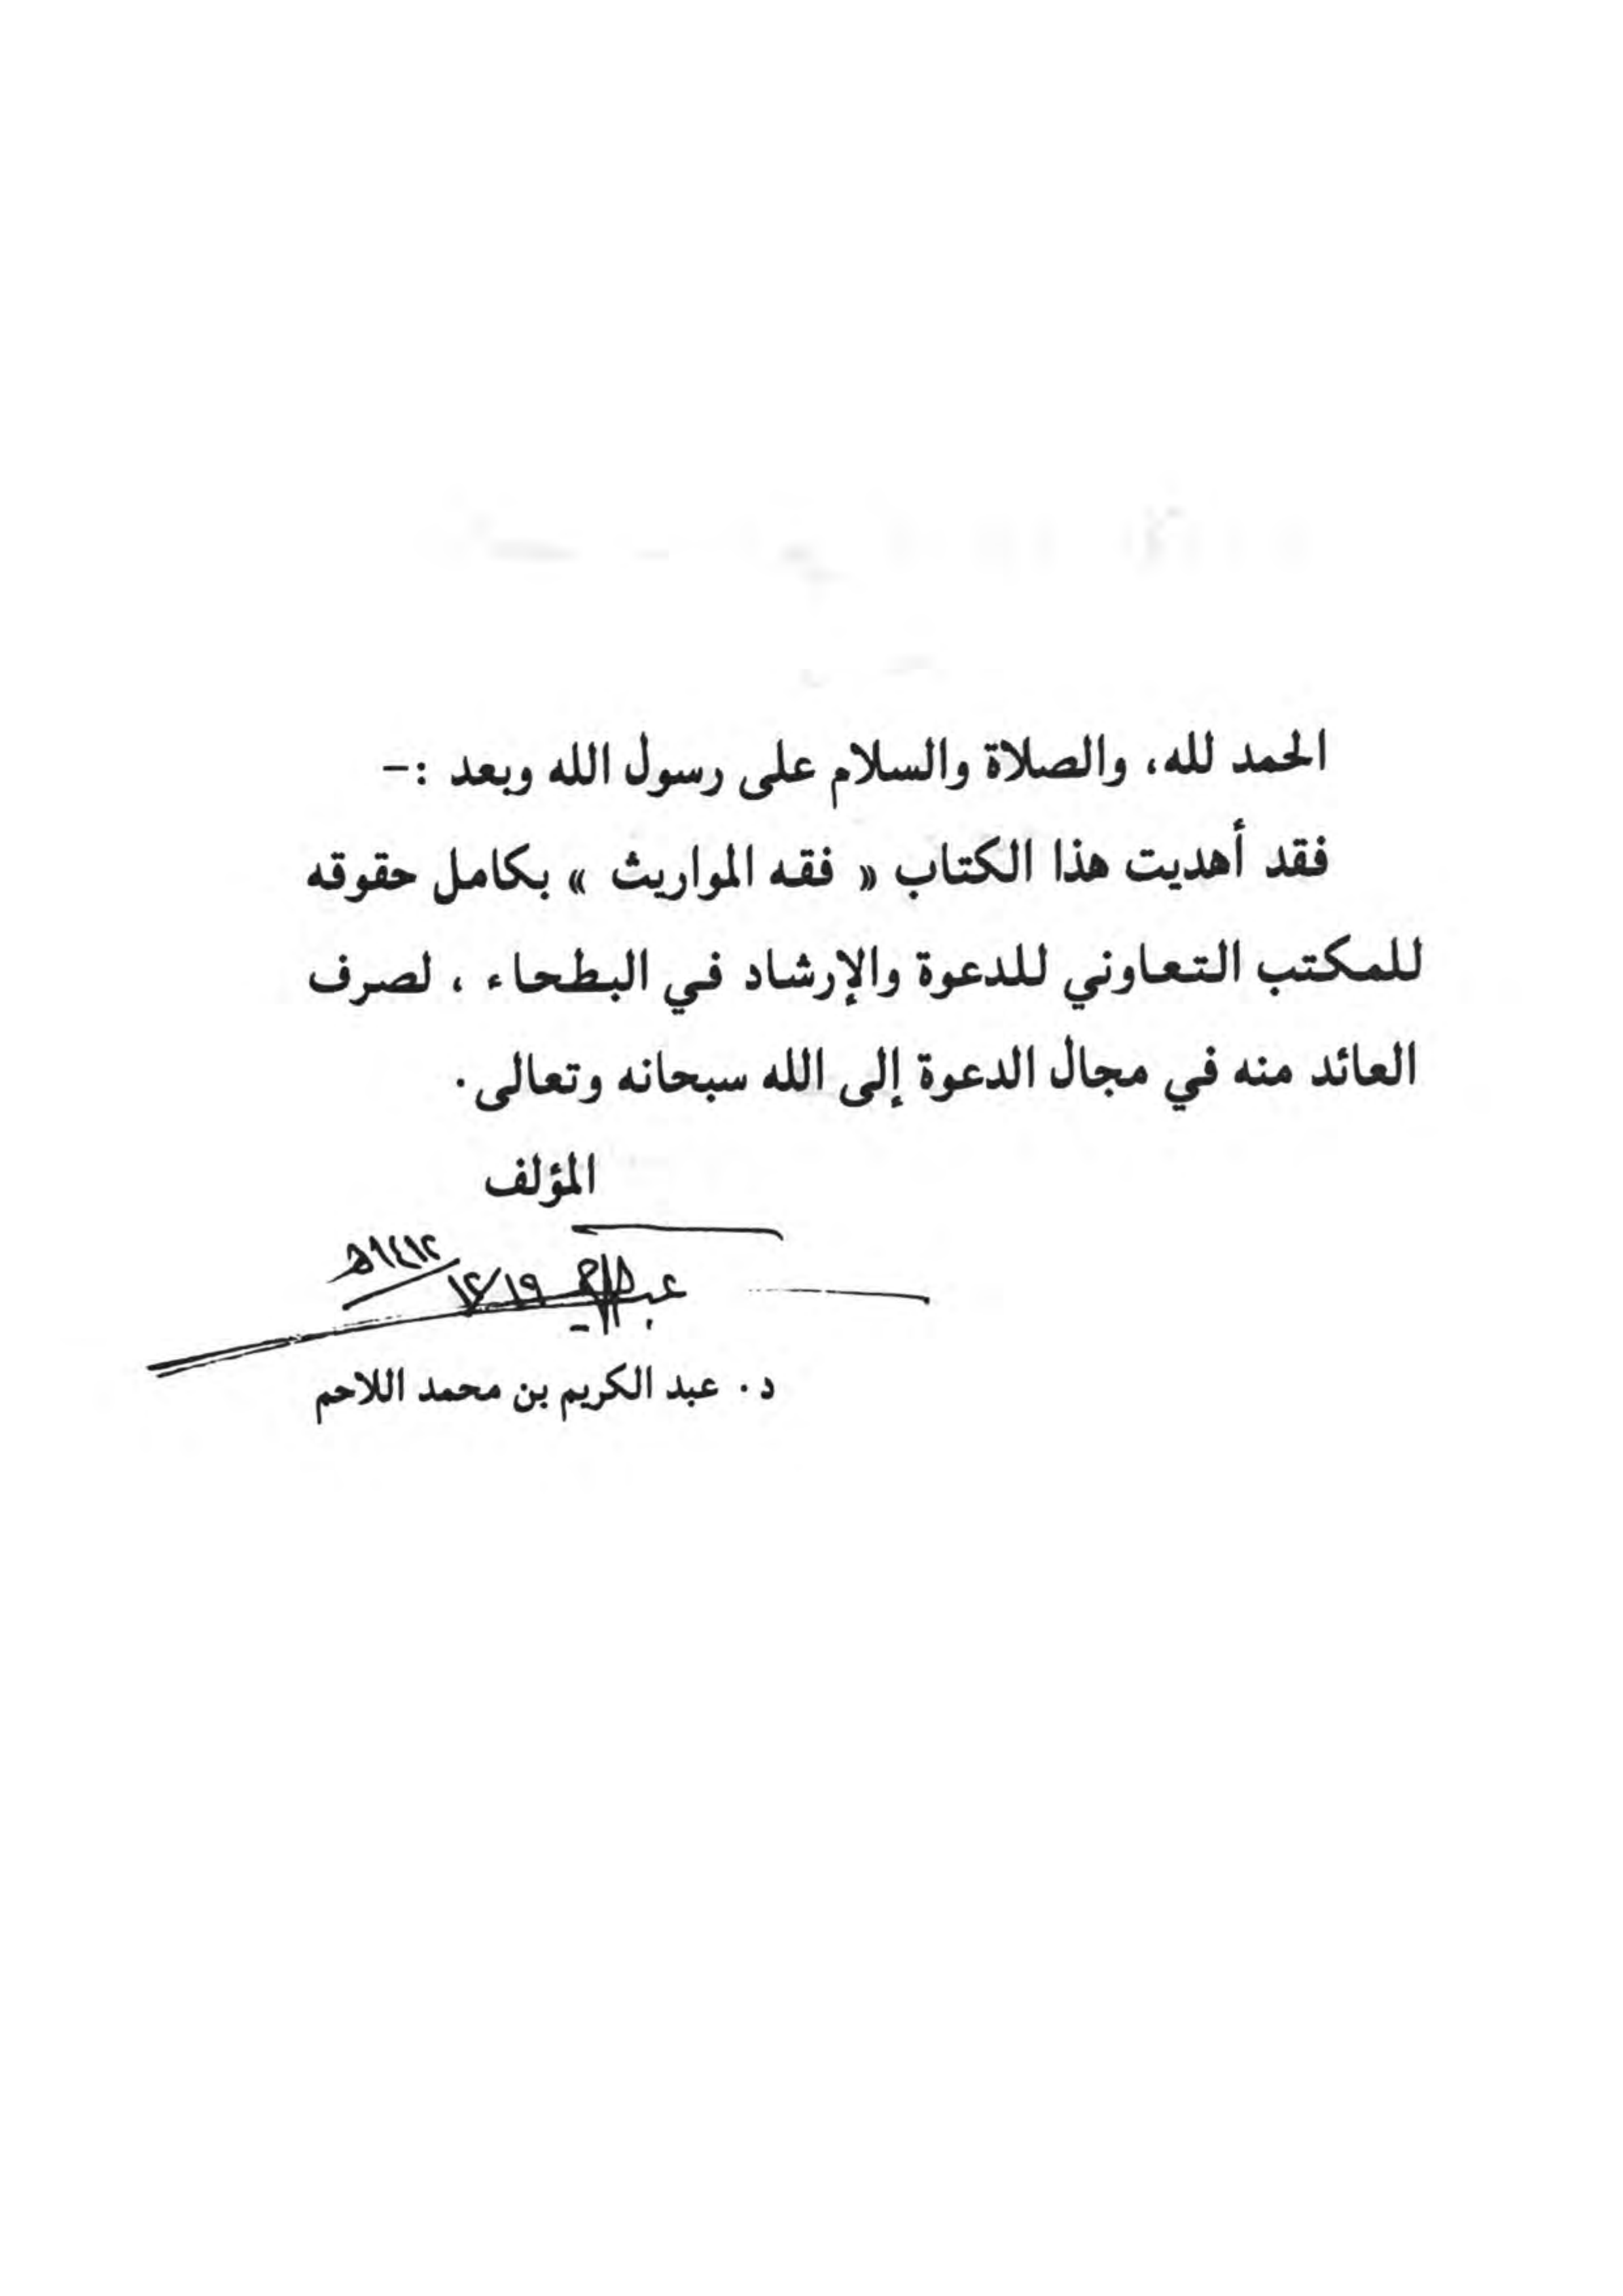 الحمد لله، والصلاة والسلام على رسول الله وبعد :-
فقد أهديت هذا الكتاب « فقه المواريث » بكامل حقوقه
للمكتب التعاوني للدعوة والإرشاد في البطحاء ، لصرف
العائد منه في مجال الدعوة إلى الله سبحانه وتعالى .
المؤلف
١٤١٢هـ
١٢/١٩
د . عبد الكريم بن محمد اللاحم